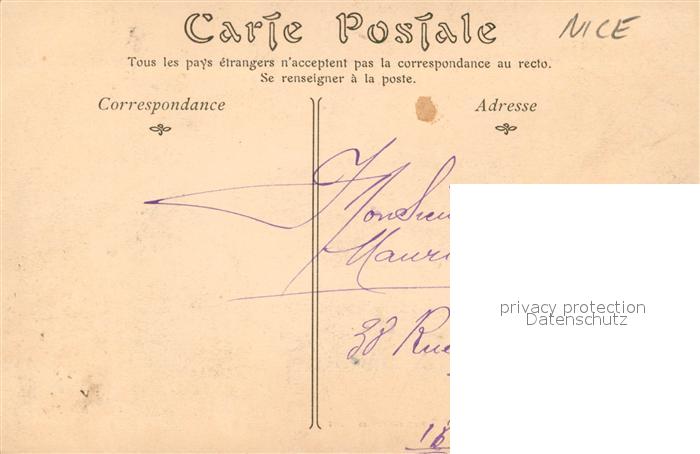 Carte Postale
NICE
Tous les pays étrangers n'acceptent pas la correspondance au recto.
Se renseigner à la poste.
Correspondance
Adresse
Monsieu
Mauri
privacy protection
Datenschutz
38 Rue